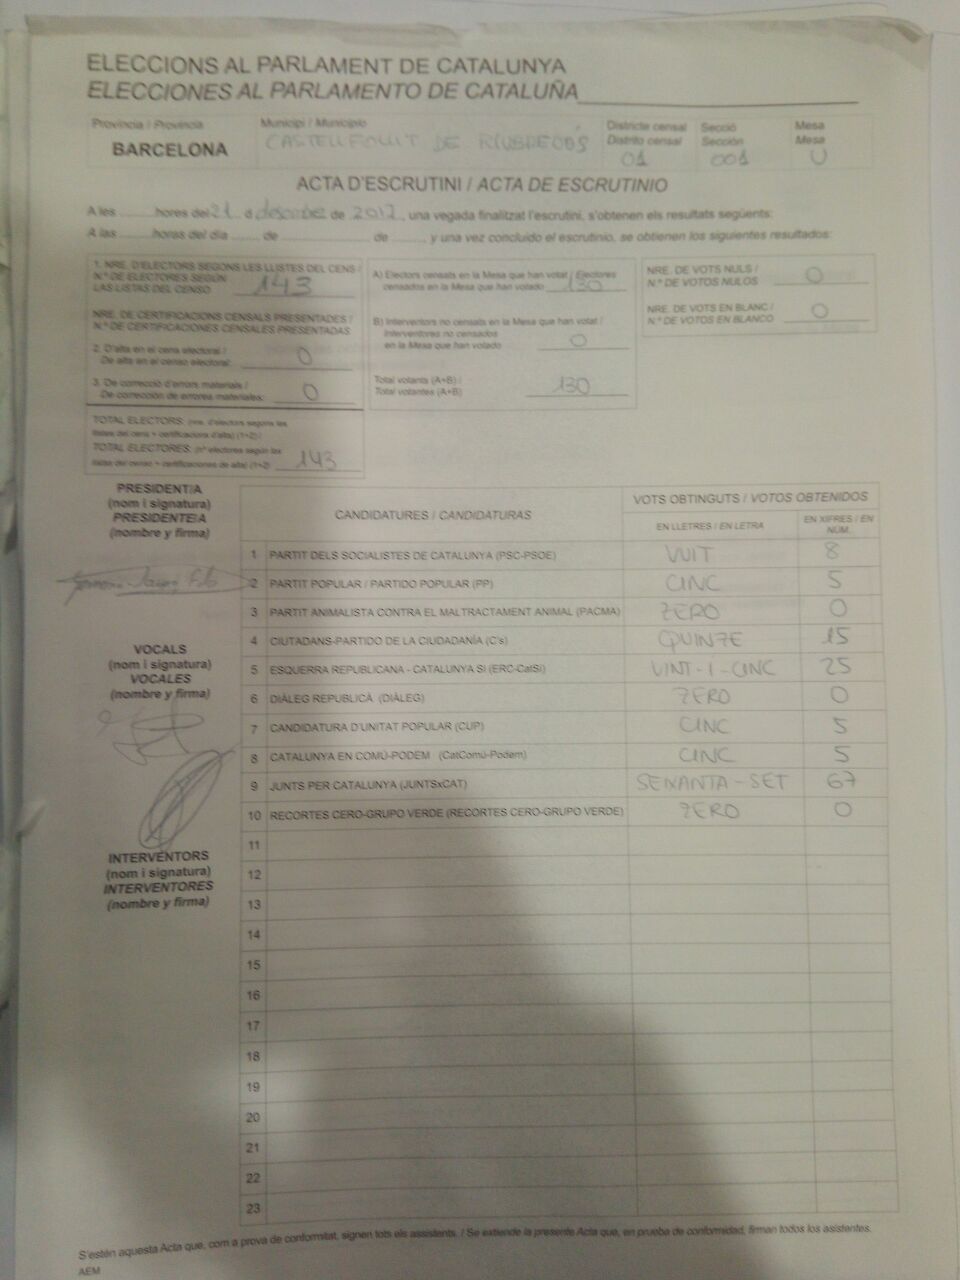 ELECCIONS AL PARLAMENT DE CATALUNYA
ELECCIONES AL PARLAMENTO DE CATALUÑA
Província / Provincia
BARCELONA
Municipi / Municipio
CASTELLFOLLIT DE RIUBREGÓS
Districte censal
Distrito censal
01
Secció
Sección
001
Mesa
Mesa
U
ACTA D'ESCRUTINI / ACTA DE ESCRUTINIO
A les ........ hores del 21 d desembre de 2017, una vegada finalitzat l'escrutini, s'obtenen els resultats següents:
A las ........ horas del día ........ de ........ de ........, y una vez concluido el escrutinio, se obtienen los siguientes resultados:
1. NRE. D'ELECTORS SEGONS LES LLISTES DEL CENS /
N.º DE ELECTORES SEGÚN
LAS LISTAS DEL CENSO 143
NRE. DE CERTIFICACIONS CENSALS PRESENTADES /
N.º DE CERTIFICACIONES CENSALES PRESENTADAS
2. D'alta en el cens electoral /
De alta en el censo electoral: 0
3. De correcció d'errors materials /
De corrección de errores materiales: 0
TOTAL ELECTORS: (nre. d'electors segons les
llistes del cens + certificacions d'alta) (1+2) /
TOTAL ELECTORES: (nº electores según las
listas del censo + certificaciones de alta) (1+2) 143
A) Electors censats en la Mesa que han votat / Electores
censados en la Mesa que han votado 130
B) Interventors no censats en la Mesa que han votat /
Interventores no censados
en la Mesa que han votado 0
Total votants (A+B) /
Total votantes (A+B) 130
NRE. DE VOTS NULS /
N.º DE VOTOS NULOS 0
NRE. DE VOTS EN BLANC /
N.º DE VOTOS EN BLANCO 0
PRESIDENT/A
(nom i signatura)
PRESIDENTE/A
(nombre y firma)
VOCALS
(nom i signatura)
VOCALES
(nombre y firma)
INTERVENTORS
(nom i signatura)
INTERVENTORES
(nombre y firma)
CANDIDATURES / CANDIDATURAS
VOTS OBTINGUTS / VOTOS OBTENIDOS
EN LLETRES / EN LETRA
EN XIFRES / EN NÚM.
1 PARTIT DELS SOCIALISTES DE CATALUNYA (PSC-PSOE) VUIT 8
2 PARTIT POPULAR / PARTIDO POPULAR (PP) CINC 5
3 PARTIT ANIMALISTA CONTRA EL MALTRACTAMENT ANIMAL (PACMA) ZERO 0
4 CIUTADANS-PARTIDO DE LA CIUDADANÍA (C's) QUINZE 15
5 ESQUERRA REPUBLICANA - CATALUNYA SÍ (ERC-CatSí) VINT-I-CINC 25
6 DIÀLEG REPUBLICÀ (DIÀLEG) ZERO 0
7 CANDIDATURA D'UNITAT POPULAR (CUP) CINC 5
8 CATALUNYA EN COMÚ-PODEM (CatComú-Podem) CINC 5
9 JUNTS PER CATALUNYA (JUNTSxCAT) SEIXANTA-SET 67
10 RECORTES CERO-GRUPO VERDE (RECORTES CERO-GRUPO VERDE) ZERO 0
11
12
13
14
15
16
17
18
19
20
21
22
23
S'estén aquesta Acta que, com a prova de conformitat, signen tots els assistents. / Se extiende la presente Acta que, en prueba de conformidad, firman todos los asistentes.
AEM